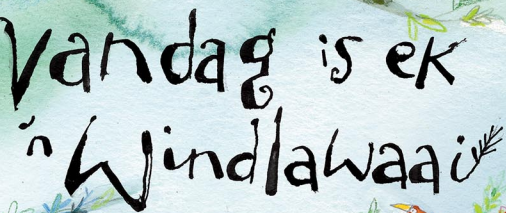 Vandag is ek
'n Windlawaai